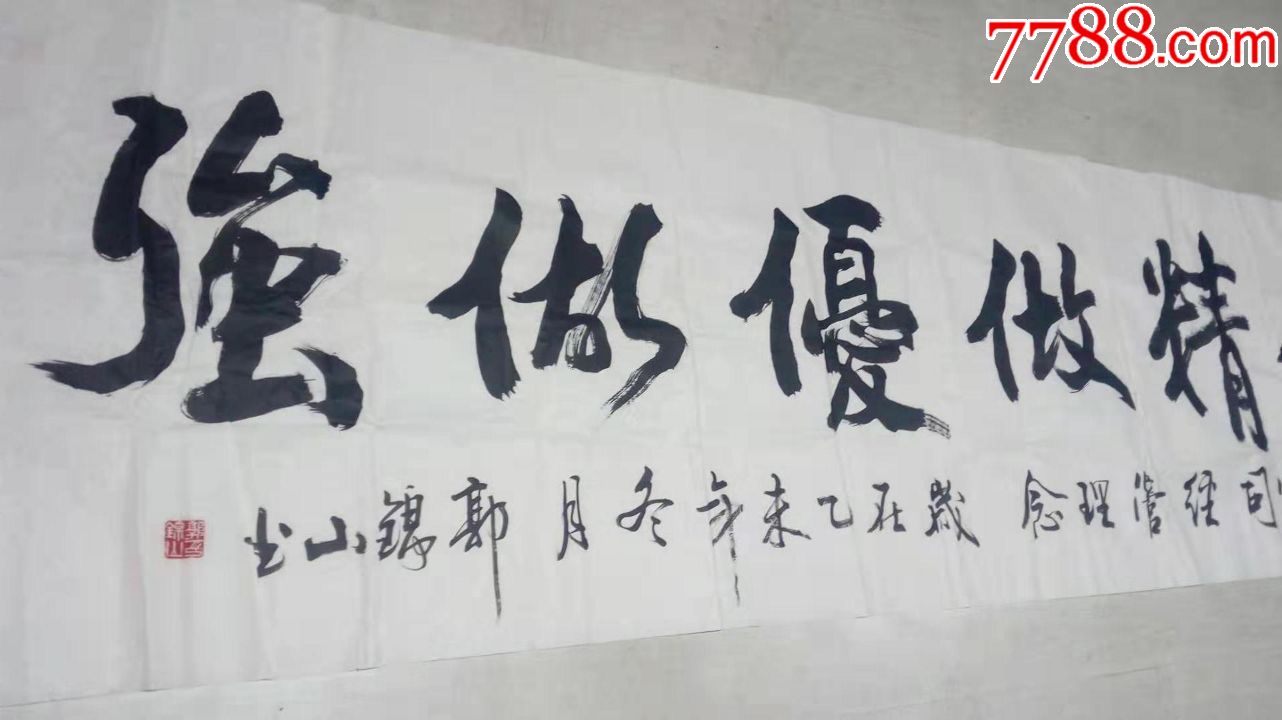 7788.com
精做優做強
司经营理念 歲在乙未年冬月 郭錦山书